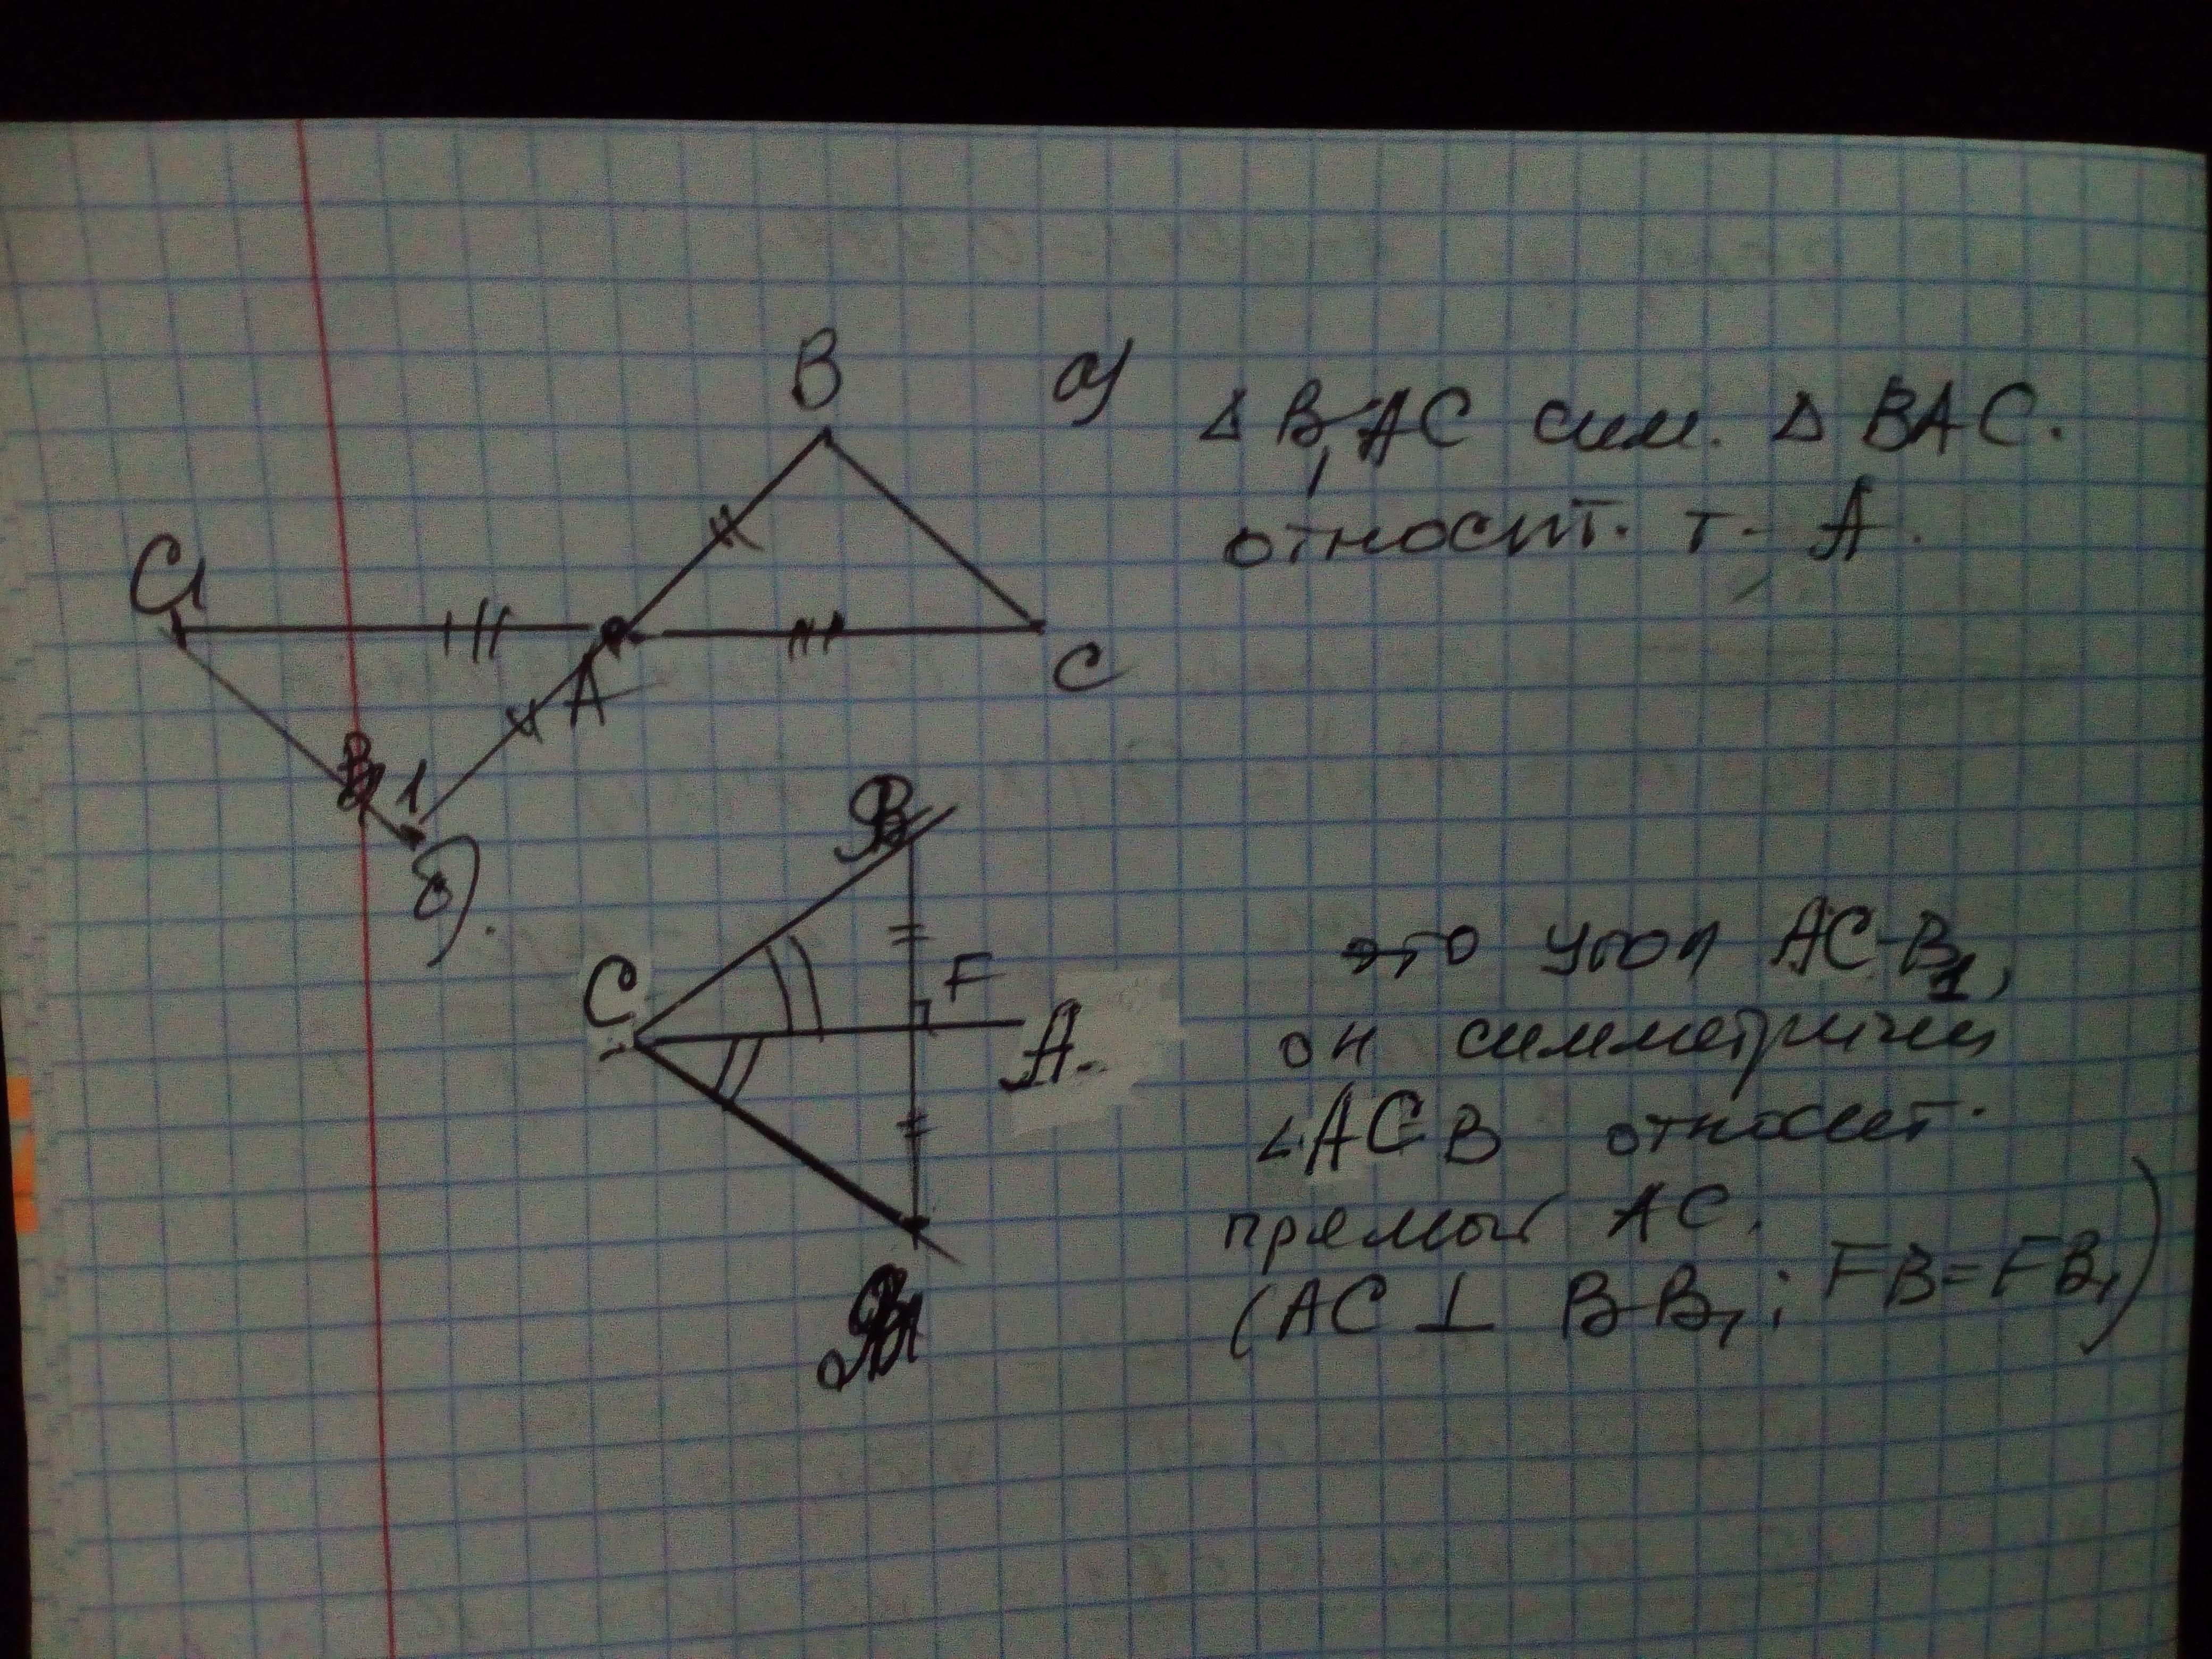 B
а)
△ B₁AC сим. △ BAC.
относит. т. A.
C1
A
C
B1
б).
B
C
F
A.
B1
это угол ACB₁,
он симметричен
∠ACB относит.
прямой AC.
(AC ⊥ BB₁; FB=FB₁)